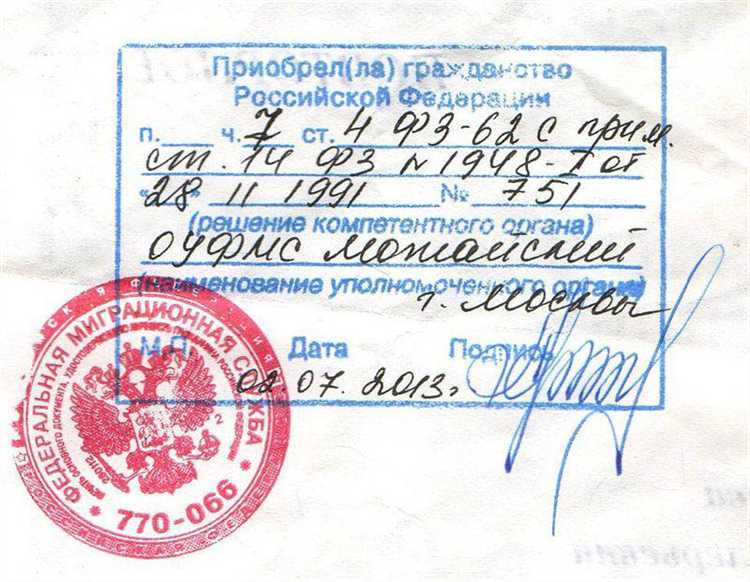 Приобрел(ла) гражданство
Российской Федерации
п. ч. 7 ст. 4 ФЗ-62 с прим.
ст. 14 ФЗ N 1948-I от
"28" 11 1991 № 751
(решение компетентного органа)
ОУФМС Можайский
(наименование уполномоченного органа)
г. Москвы
М.П. Дата Подпись
02.07.2013г
ФЕДЕРАЛЬНАЯ МИГРАЦИОННАЯ СЛУЖБА
* 770-066 *